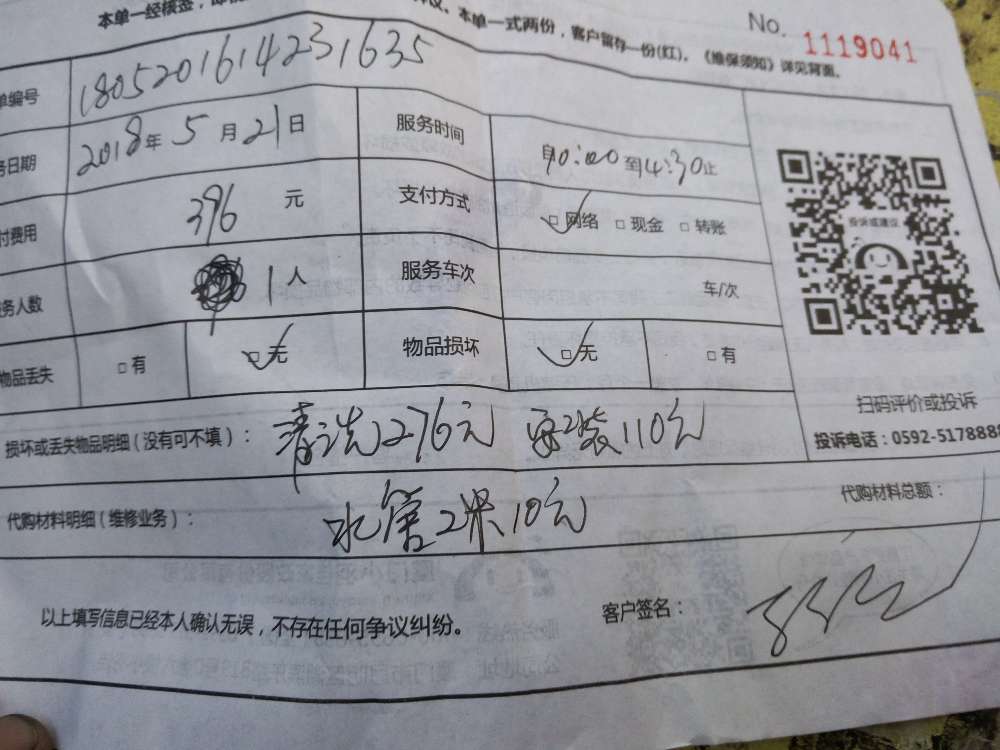 本单一经核签，
议。本单一式两份，客户留存一份(红)。《维保须知》详见背面。
No. 1119041
单编号 180520161423 1635
务日期 2018年5月21日 服务时间 自10:00到4:30止
付费用 396 元 支付方式 □网络 □现金 □转账
务人数 1人 服务车次 车/次
物品丢失 □有 □无 物品损坏 □无 □有
投诉或建议
扫码评价或投诉
投诉电话：0592-5178888
损坏或丢失物品明细（没有可不填）： 清洗276元 安装110元
代购材料明细（维修业务）： 水管2米10元 代购材料总额：
以上填写信息已经本人确认无误，不存在任何争议纠纷。 客户签名：